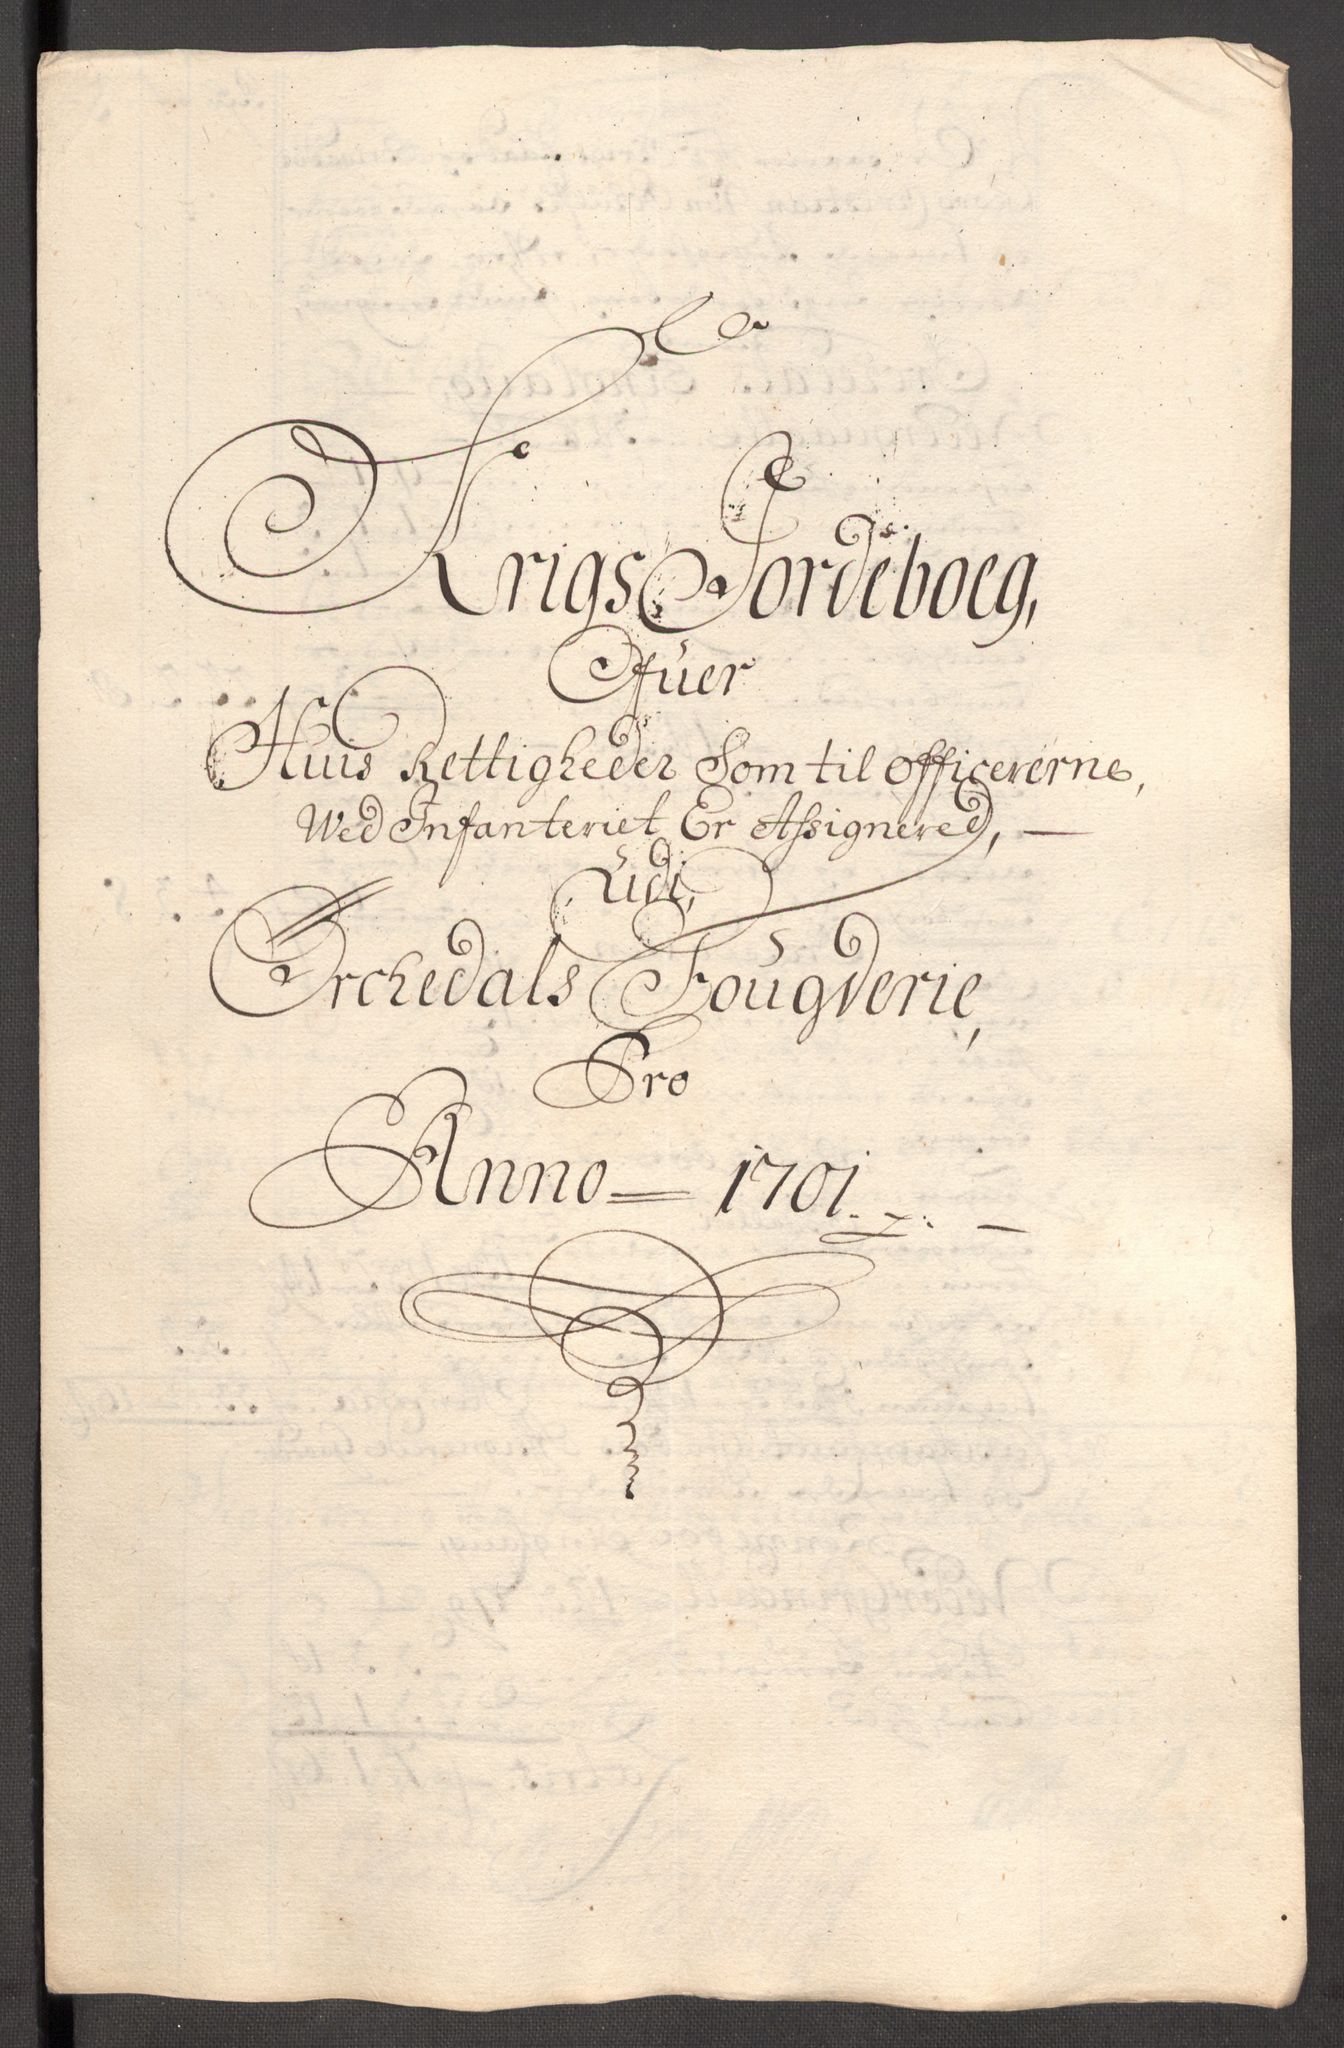 Krigs Jordeboeg,
Ofuer
Huis Rettigheder Som til officererne,
Wed Infanteriet Er Assignered, —
Udi,
Orchedals Fougderie,
Pro
Anno = 1701.